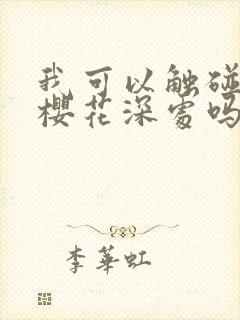 我可以触碰
樱花深处吗
李华虹